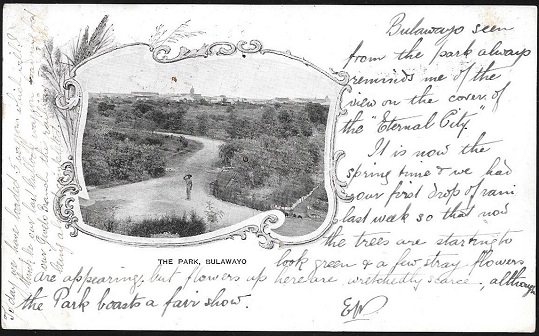 Bulawayo seen
from the park always
reminds me of the
view on the cover of
the "Eternal City".
It is now the
spring time & we had
our first drop of rain
last week so that now
the trees are starting to
look green & a few stray flowers
are appearing, but flowers up here are wretchedly scarce, although
the Park boasts a fair show.
EW
THE PARK, BULAWAYO